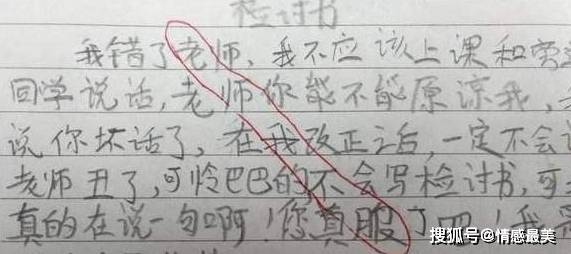 检讨书
我错了老师，我不应该上课和旁边
同学说话，老师你能不能原谅我，
说你坏话了，在我改正之后，一定不会
老师丑了，可怜巴巴的不会写检讨书，可
真的在说一句啊！您真服了吧！我
搜狐号@情感最美